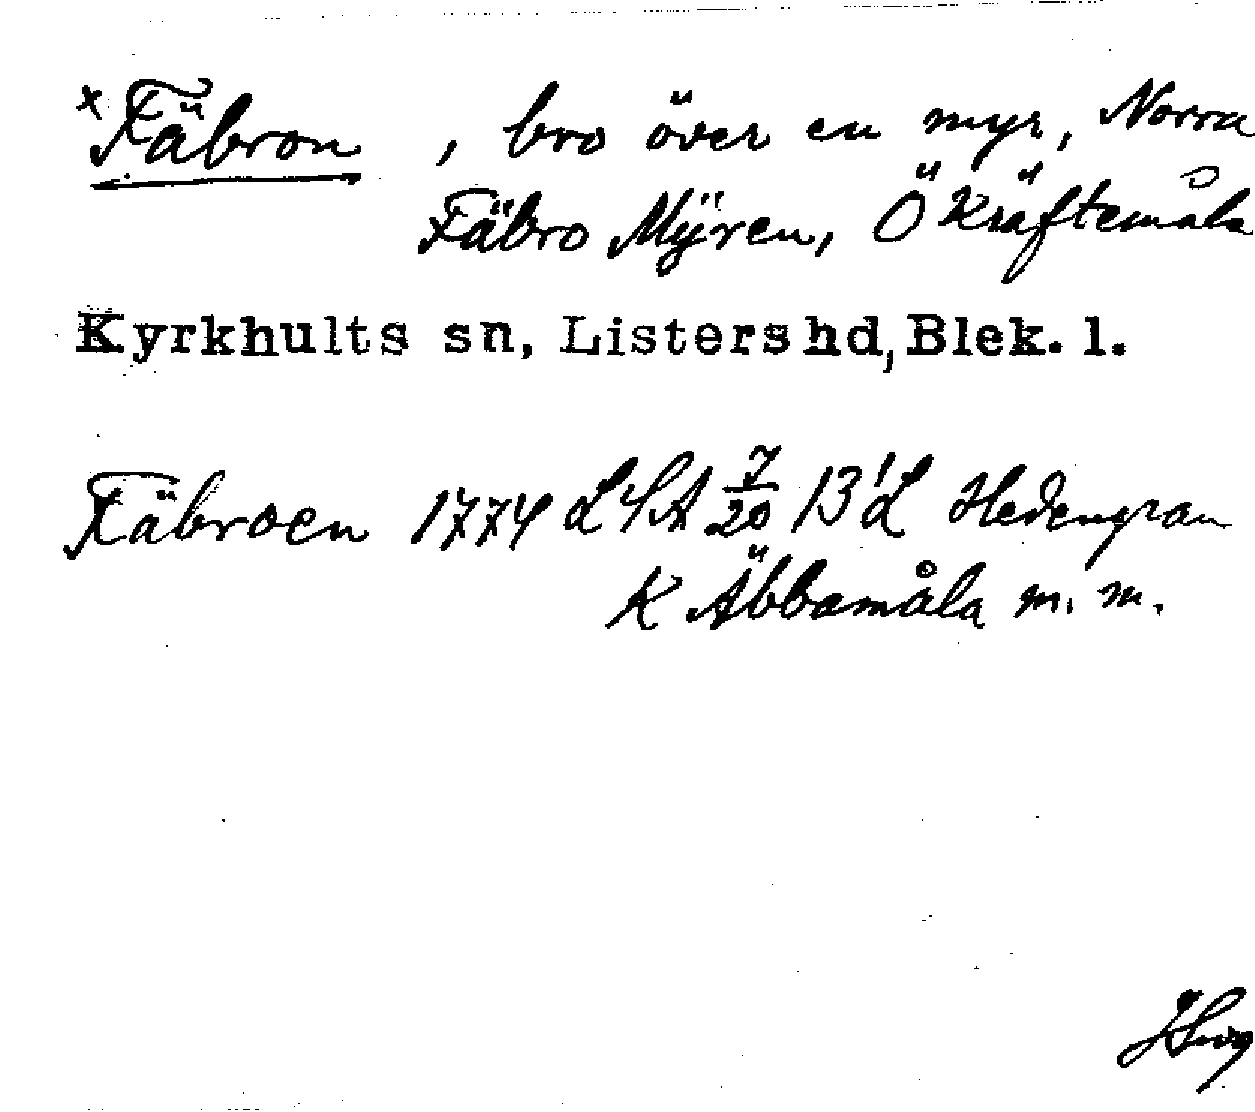 x Fäbron, bro över en myr, Norra
Fäbro Mÿren, Ö Kräftemåla
Kyrkhults sn, Listers hd, Blek. l.
Fäbroen 1774 LSA 7/20 B'L Hedengran
K Äbbamåla m. m.